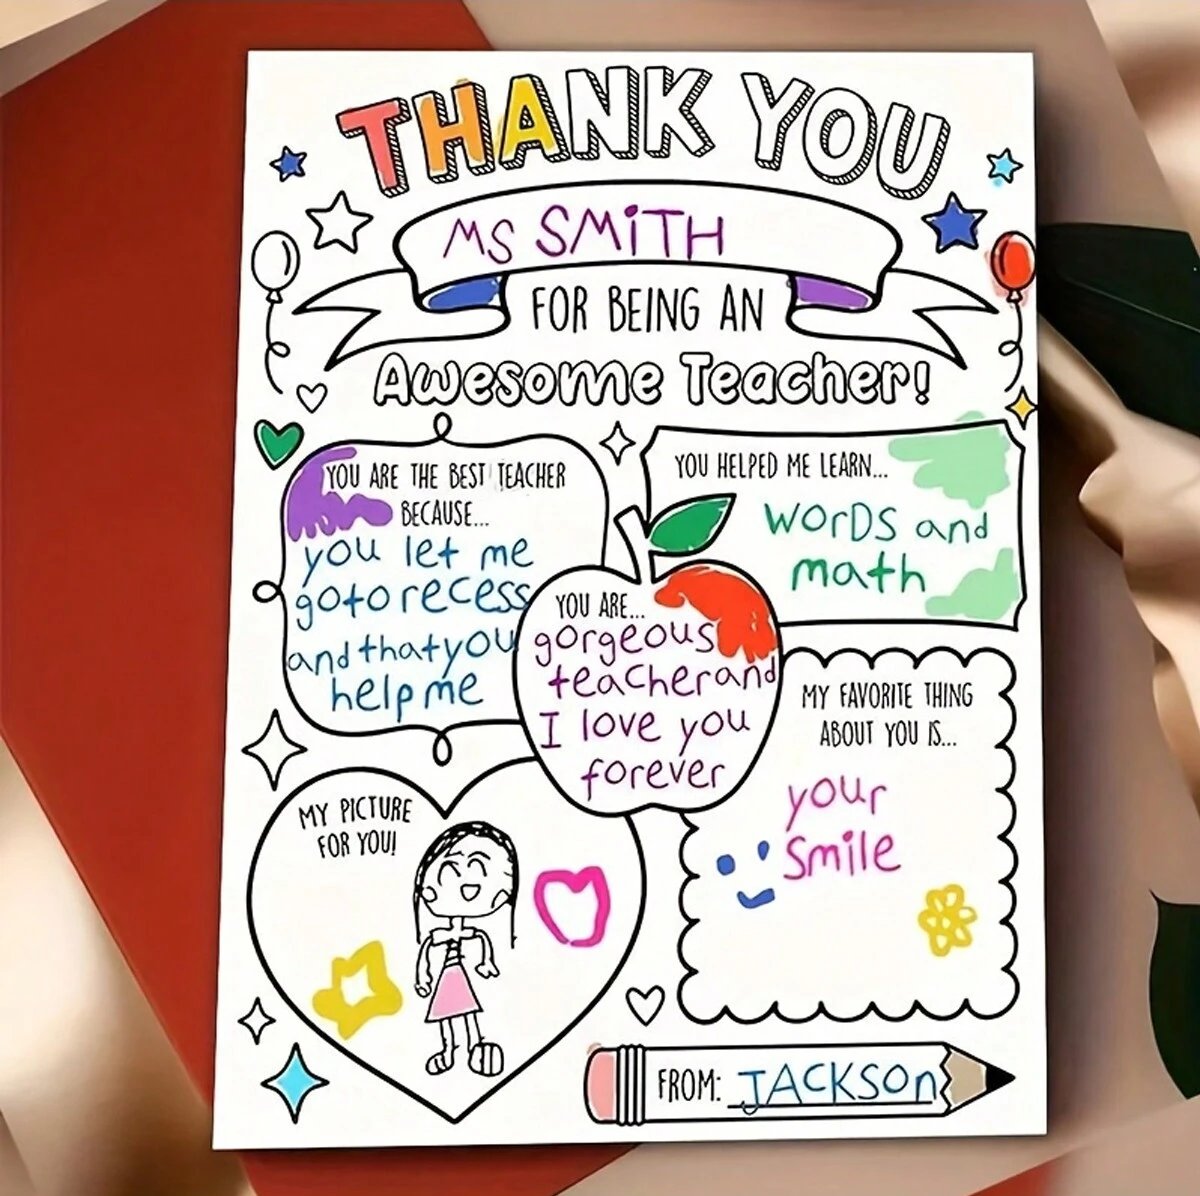 THANK YOU
MS SMiTH
FOR BEING AN
Awesome Teacher!
YOU ARE THE BEST TEACHER
BECAUSE...
you let me
go to recess
and that you
help me
YOU HELPED ME LEARN...
WorDS and
math
YOU ARE...
gorgeous
teacher and
I love you
forever
MY FAVORITE THING
ABOUT YOU IS...
your
Smile
MY PICTURE
FOR YOU!
FROM: JACKSOn